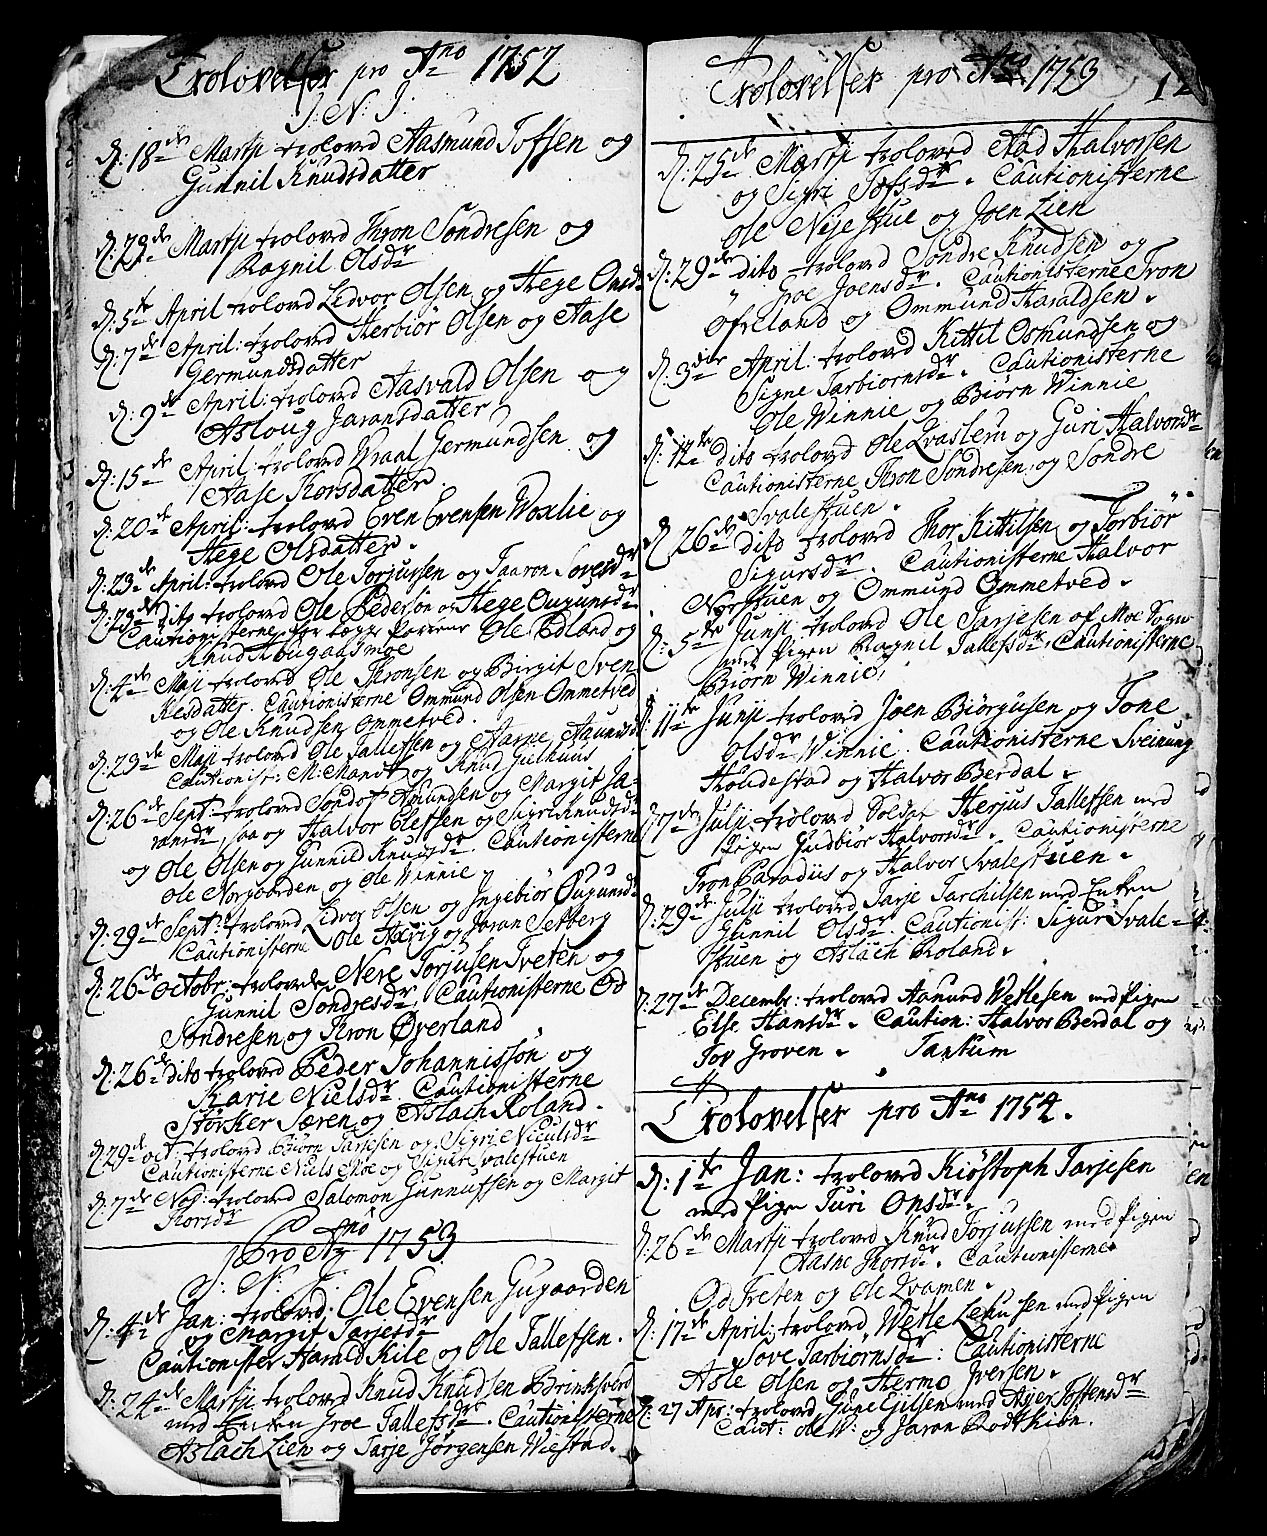 Trolovelser pro Ano 1752
J: N: J:
D: 18de Martji trolovd Aasmund Tofsen og
Gunnil Knudsdatter
D: 29de Martji trolovd Thron Sondresen og
Ragnil Olsdr
D: 5te April trolovd Ledvor Olsen og Hege Onsd
D: 7de April: trolovd Herbiör Olsen og Aase
Germundsdatter
D: 9de April: trolovd Aasvald Olsen og
Asloug Jaransdatter
D: 15de April: trolovd Wraal Germundsen og
Aase Thorsdatter.
D: 20de April: trolovd Even Evensen Woxlie og
Hege Olsdatter.
D: 23de April: trolovd Ole Torjussen og Taaron Sovesdr
D: 23de dito trolovd Ole Pedersön og Hege Ougunsdr
Cautionisterne for begge Parrene Ole Edland og
Knud Haugaasmoe
D: 4de Maji trolovd Ole Thronsen og Birgit Sven
Kesdatter. Cautionisterne Ommund Olsen Ommetved
og Ole Knudsen Ommetved.
D: 23de Maji trolovd Ole Tallefsen og Aasne Aanunsd
Cautionist: M: Mandt og Knud Gulhuus
D: 26de Septr: trolovd Sondof Amundsen og Margit Ja-
ransdr, saa og Halvor Olefsen og Sigri Knudsdr
og Ole Olsen og Gunnild Knudsdr. Cautionisterne
Ole Norgaarden og Ole Winnie
D: 29de Sept: trolovd Ledvor Olsen og Ingebiör Ougunsdr
Cautionisterne Ole Haarig og Jaran Setberg
D: 26de Octobr: trolovde Neve Torjusen Tveten og
Gunnil Sondresdr, Cautionisterne Od
Sondresen og Thron Øverland
D: 26de dito trolovd Peder Johannissön og
Karie Nielsdr. Cautionisterne
Störker Særen og Aslach Roland.
D: 29de oct: trolovd Biörn Tarjesen og Sigri Niculsdr
Cautionisterne Niels Moe og Sigur Svalestuen
D: 7de Nov: trolovd Salomon Gunnufsen og Margit
Thorsdr
Pro Ao 1753
J: N: J:
D: 4de Jan: trolovd: Ole Evensen Gugaarden
og Margit Tarjesdr
Cautionister Harald Kile og Ole Tallefsen.
D: 24de Martji trolovd Knud Knudsen Brinksverd
med Enken Groe Tallefsdr. Cautionisterne
Aslach Lien og Tarje Jörgensen Wiestad.
Trolovelser pro Ano 1753
D: 25de Martji trolovd Aad Halvorsen
og Sigri Tofsdr. Cautionisterne
Ole Nijestue og Joen Lien
D: 29de dito trolovd Sondre Knudsen og
Groe Joensdr. Cautionisterne Tron
Øfreland og Ommund Haraldsen.
D: 3die April: trolovd Kittil Osmundsen og
Signe Tarbiornsdr. Cautionisterne
Ole Winnie og Biörn Winnie
D: 12te dito trolovd Ole Qvaslern og Guri Halvorsdr
Cautionisterne Thron Sondresen og Sondre
Svalestuen.
D: 26de dito trolovd Thor Kittilsen og Torbiör
Sigursdr. Cautionisterne Halvor
Norstuen og Ommund Ommetved.
D: 5de Junji trolovd Ole Tarjesen af Moe Sogn
med Pigen Ragnil Tallefsdr, Cautionisterne
Biörn Winnie,
D: 11te Junji trolovd Joen Biörgusen og Tone
Olsdr Winnie. Cautionisterne Sveinung
Holdestad og Halvor Berdal.
D: 7de Julji: trolovd Soldat Herjus Tallefsen med
Pigen Gudbiör Halvorsdr. Cautionisterne
Tron Paradiis og Halvor Svalestuen.
D: 29de Julji trolovd Tarje Tarchilsen med Enken
Gunnil Olsdr. Cautionist: Sigur Svale-
stuen og Aslach Roland.
D: 27de Decembr: trolovd Aanund Wetlesen med Pigen
Else Hansdr. Caution: Halvor Berdal og
Tov Groven. Tantum
Trolovelser pro Ano 1754.
D: 1te Jan: trolovd Kiöstoph Tarjesen
med Pigen Turi Onsdr.
D: 26de Martji trolovd Knud Torjussen med Pigen
Aasne Thorsdr. Cautionisterne
Od Tveten og Ole Qvamen.
D: 17de April: trolovd Wetle Lekusen med Pigen
Sove Tarbiornsdr: Cautionisterne
Asle Olsen og Hermo Iversen.
D: 27 Apr: trolovd Gune Gilsen med Ager Toftensdr
Caut: ole W. og Jaran Rodtheim.